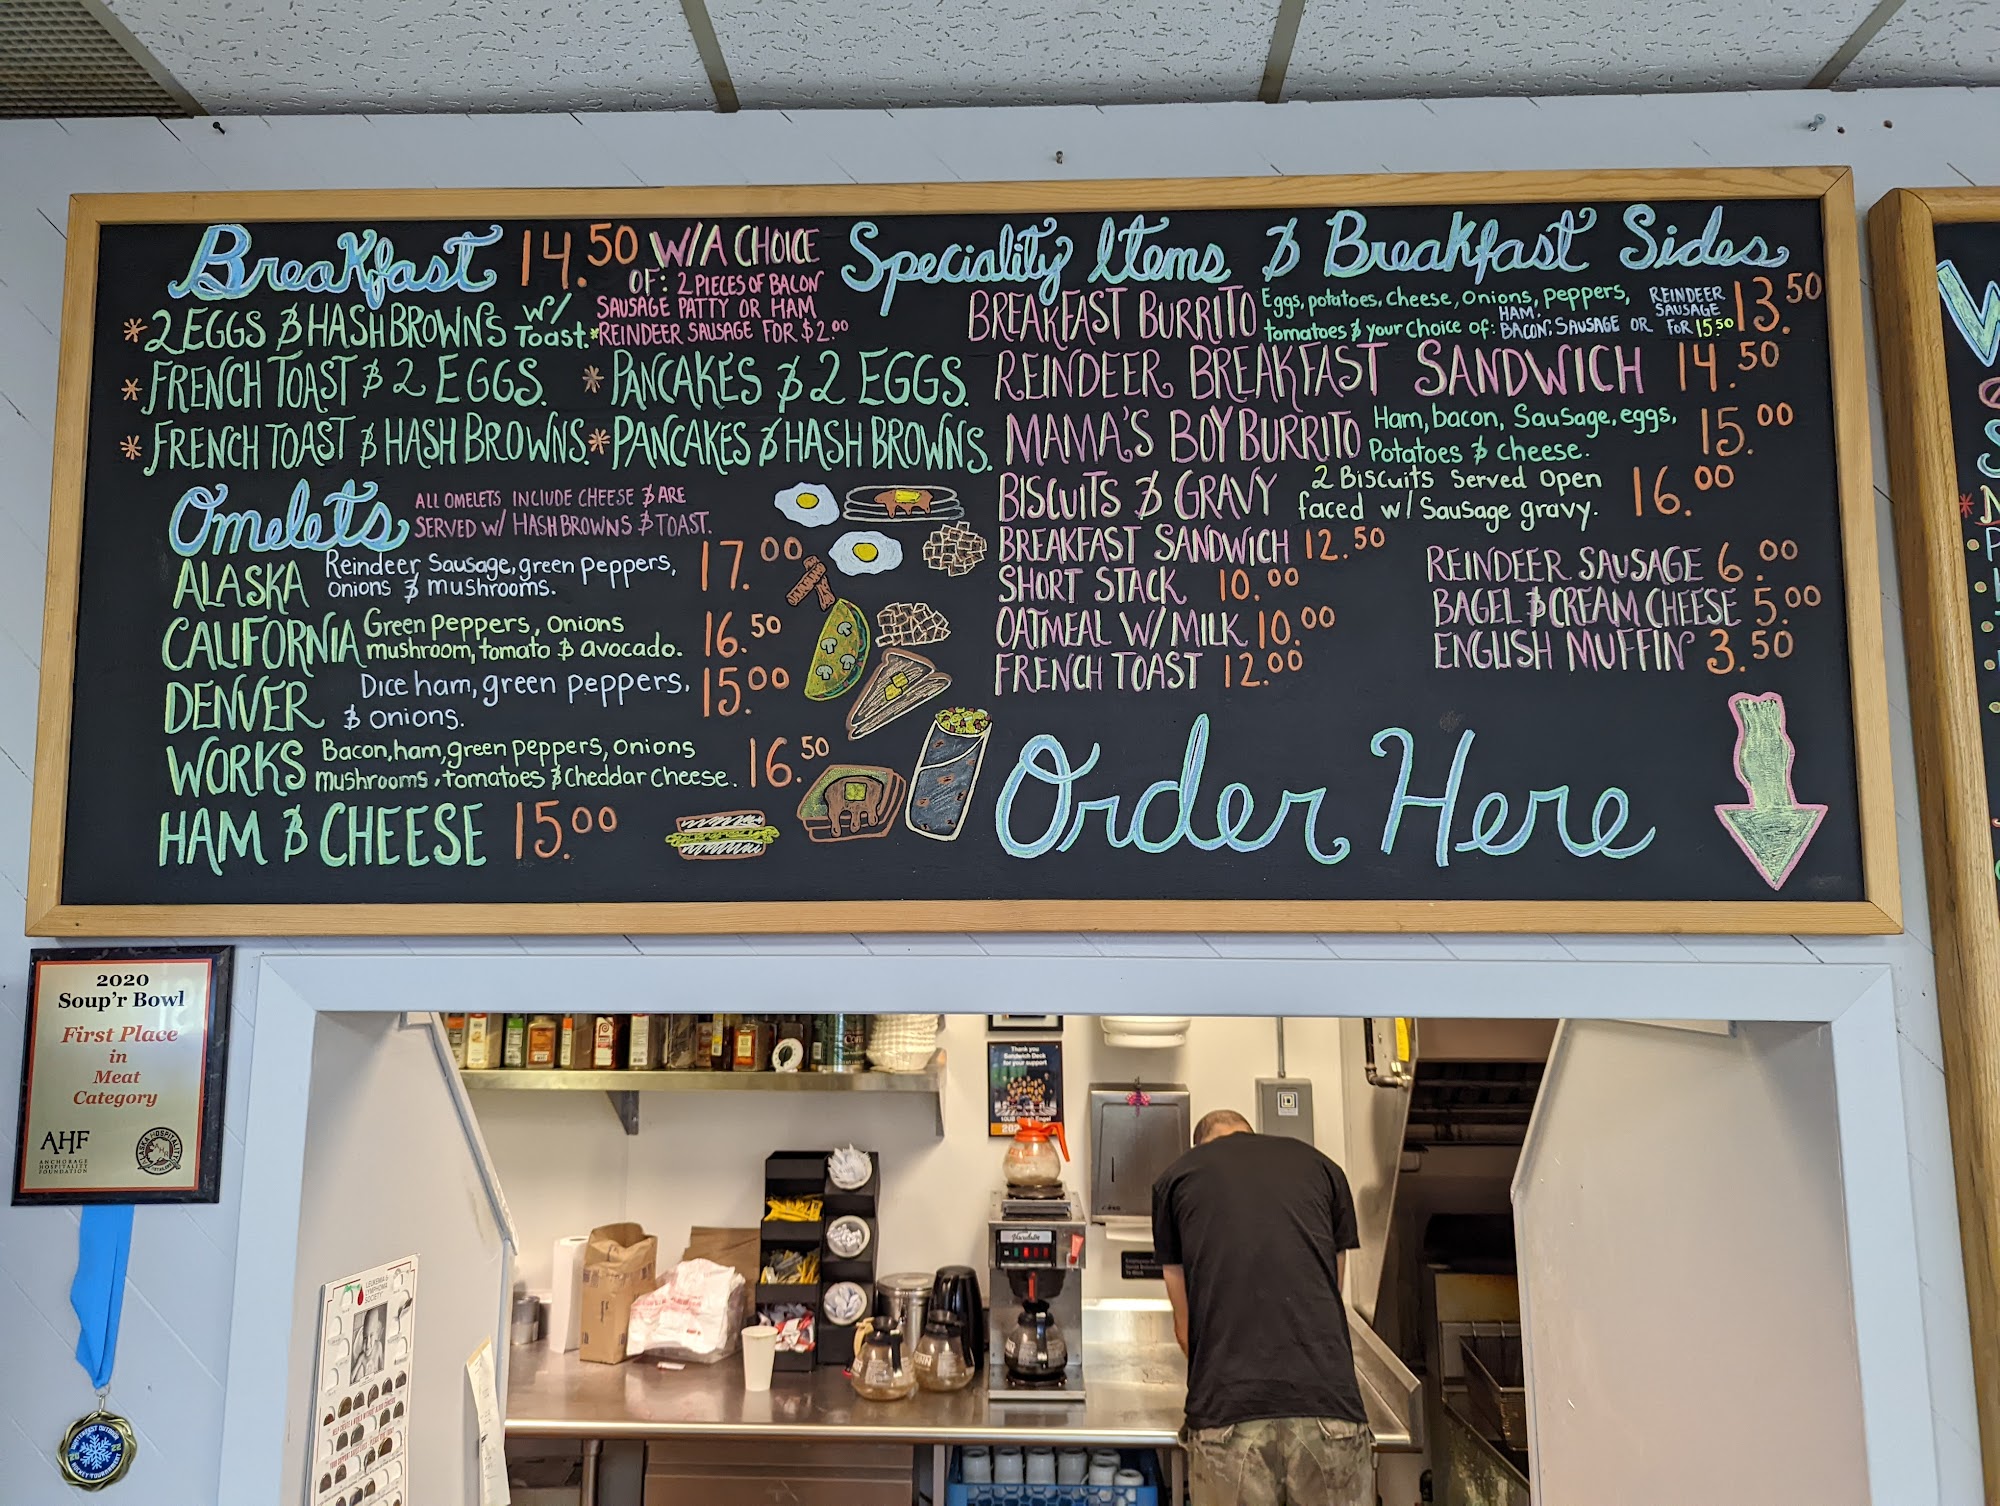 Breakfast 14.50 W/A CHOICE
OF: 2 PIECES OF BACON
SAUSAGE PATTY OR HAM
*REINDEER SAUSAGE FOR $2.00
* 2 EGGS & HASHBROWNS W/ Toast.
* FRENCH TOAST & 2 EGGS. * PANCAKES & 2 EGGS.
* FRENCH TOAST & HASH BROWNS. * PANCAKES & HASH BROWNS.
Omelets ALL OMELETS INCLUDE CHEESE & ARE
SERVED W/ HASHBROWNS & TOAST.
ALASKA Reindeer Sausage, green peppers, 17.00
onions & mushrooms.
CALIFORNIA Green peppers, onions 16.50
mushroom, tomato & avocado.
DENVER Dice ham, green peppers, 15.00
& onions.
WORKS Bacon, ham, green peppers, onions 16.50
mushrooms, tomatoes & Cheddar cheese.
HAM & CHEESE 15.00
Speciality Items & Breakfast Sides
BREAKFAST BURRITO Eggs, potatoes, cheese, onions, peppers, 13.50
tomatoes & your choice of: HAM, BACON, SAUSAGE OR REINDEER SAUSAGE FOR 15.50
REINDEER BREAKFAST SANDWICH 14.50
MAMA'S BOY BURRITO Ham, bacon, Sausage, eggs, 15.00
Potatoes & cheese.
BISCUITS & GRAVY 2 Biscuits Served Open 16.00
faced w/ Sausage gravy.
BREAKFAST SANDWICH 12.50
SHORT STACK 10.00
OATMEAL W/ MILK 10.00
FRENCH TOAST 12.00
REINDEER SAUSAGE 6.00
BAGEL & CREAM CHEESE 5.00
ENGLISH MUFFIN 3.50
Order Here
2020
Soup'r Bowl
First Place
in
Meat
Category
AHF
ANCHORAGE
HOSPITALITY
FOUNDATION
Thank you
Sandwich Deck
for your support
LEUKEMIA &
LYMPHOMA
SOCIETY